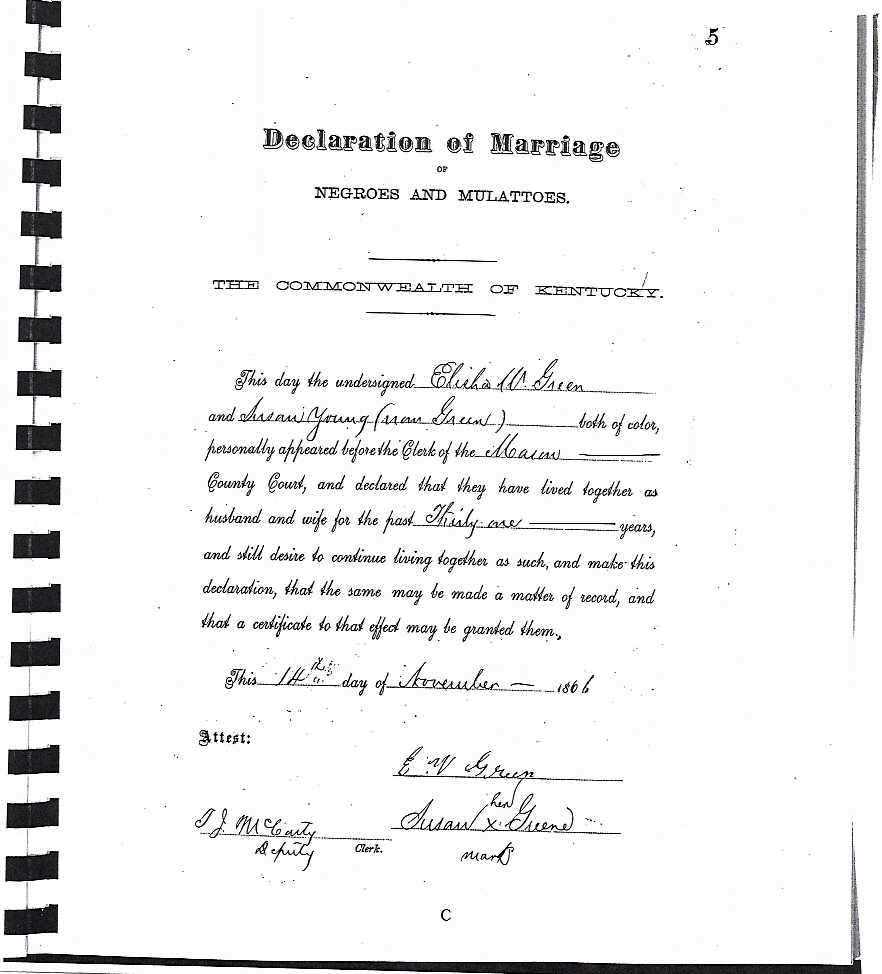 5
Declaration of Marriage
OF
NEGROES AND MULATTOES.
THE COMMONWEALTH OF KENTUCKY.
This day the undersigned Elisha W. Green
and Susan Young (now Green) both of color,
personally appeared before the Clerk of the Mason
County Court, and declared that they have lived together as
husband and wife for the past Thirty one years,
and still desire to continue living together as such, and make this
declaration, that the same may be made a matter of record, and
that a certificate to that effect may be granted them.
This 14th day of November 1866
Attest:
E W Green
her
Susan x Greene
mark
T J McCarty
Deputy Clerk.
C